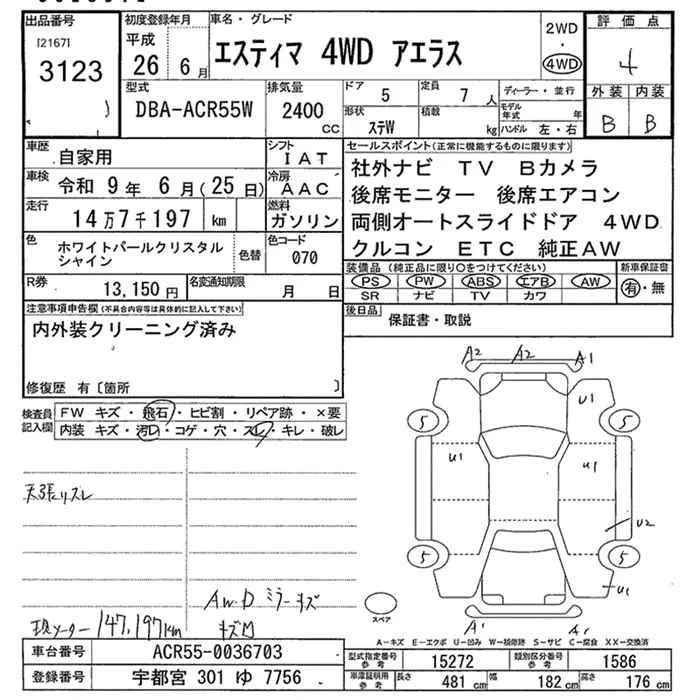 出品番号 初度登録年月 車名・グレード 2WD 評価点
[2167] 平成 エスティマ 4WD アエラス ・
3123 26年 6月 4WD 4
型式 排気量 ドア 定員 ディーラー・並行 外装 内装
DBA-ACR55W 2400cc 5 7人 モデル年式 年 B B
形状 積載 ハンドル 左・右
ステW kg
車歴 自家用 シフト IAT セールスポイント(正常に機能するものに限ります)
車検 令和 9年 6月(25日) 冷房 AAC 社外ナビ TV Bカメラ
走行 14万7千197 km 燃料 ガソリン 後席モニター 後席エアコン
両側オートスライドドア 4WD
クルコン ETC 純正AW
色 ホワイトパールクリスタルシャイン 色替 色コード 070
装備品(純正品に限り○をつけてください) 新車保証書
PS PW ABS エアB AW 有・無
SR ナビ TV カワ
R券 13,150円 名変通知期限 月 日
後日品 保証書・取説
注意事項申告欄(不具合内容等は具体的に記入して下さい)
内外装クリーニング済み
修復歴 有〔箇所 〕
検査員記入欄 FW キズ・飛石・ヒビ割・リペア跡・×要
内装 キズ・汚レ・コゲ・穴・スレ・キレ・破レ
A2 A2 A1
U1
5 5
U1 U1
U2
5 5
U1
A1 A1
スペア
天張リズレ
AWD ミラーキズ
キズ凹
現メーター 147,197km
A-キズ E-エクボ U-凹み W-補修跡 S-サビ C-腐食 XX-交換済
車台番号 ACR55-0036703
型式指定番号 参考 15272 類別区分番号 参考 1586
登録番号 宇都宮 301 ゆ 7756
車庫証明用 参考 長さ 481 cm 幅 182 cm 高さ 176 cm